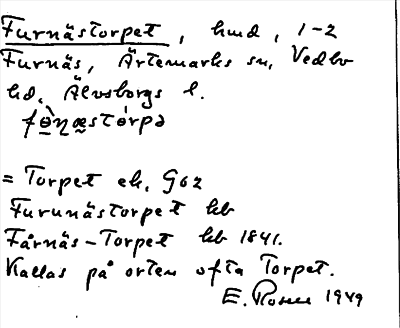 Furnästorpet, hmd, 1-2
Furnäs, Ärtemarks sn, Vedbo
hd, Älvsborgs l.
= Torpet ek. G62
Furunästorpet kb
Fårnäs-Torpet kb 1841.
Kallas på orten ofta Torpet.
E. Rosen 1949